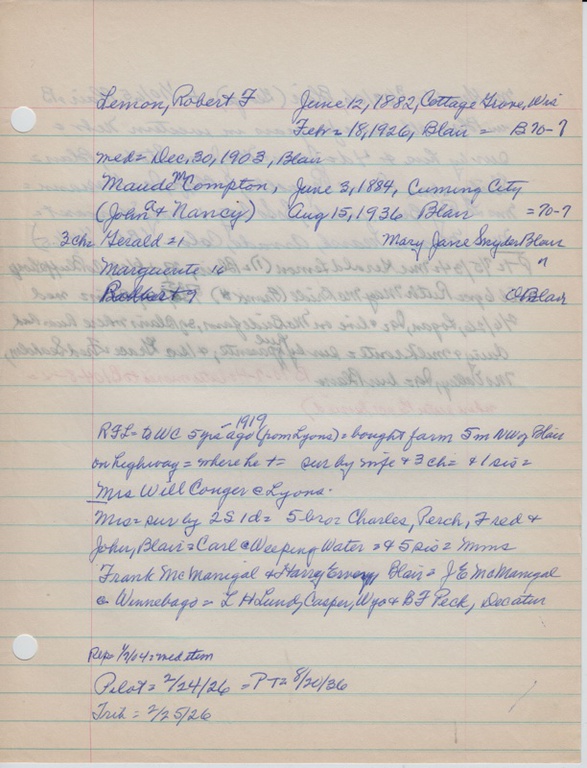 Lemon, Robert F June 12, 1882, Cottage Grove, Wis
Feb = 18, 1926, Blair = B 70-7
med = Dec, 30, 1903, Blair
Maude Mc Compton, June 3, 1884, Cuming City
(John a & Nancy) Aug 15, 1936 Blair = 70-7
3 chi Gerald = 1 Mary Jane Snyder Blair
Marguerite 16 "
Robert 7 Blair
RFL = to WC 5 yrs ago - 1919 (from Lyons) = bought farm 5 m NW of Blair
on highway = where he += sur by wife & 3 chi = & 1 sis =
Mrs Will Conger @ Lyons.
Mrs = sur by 2 S 1 d = 5 bros Charles, Perch, Fred &
John, Blair = Carl @ Weeping Water = & 5 sis = Mmes
Frank McManigal & Harry Blair = J E McManigal
@ Winnebago = L H Lund, Casper, Wyo & B F Peck, Decatur
Rep = 1/2/04 = med item
Pilot = 2/24/26 = PT = 8/20/36
Trib = 2/25/26